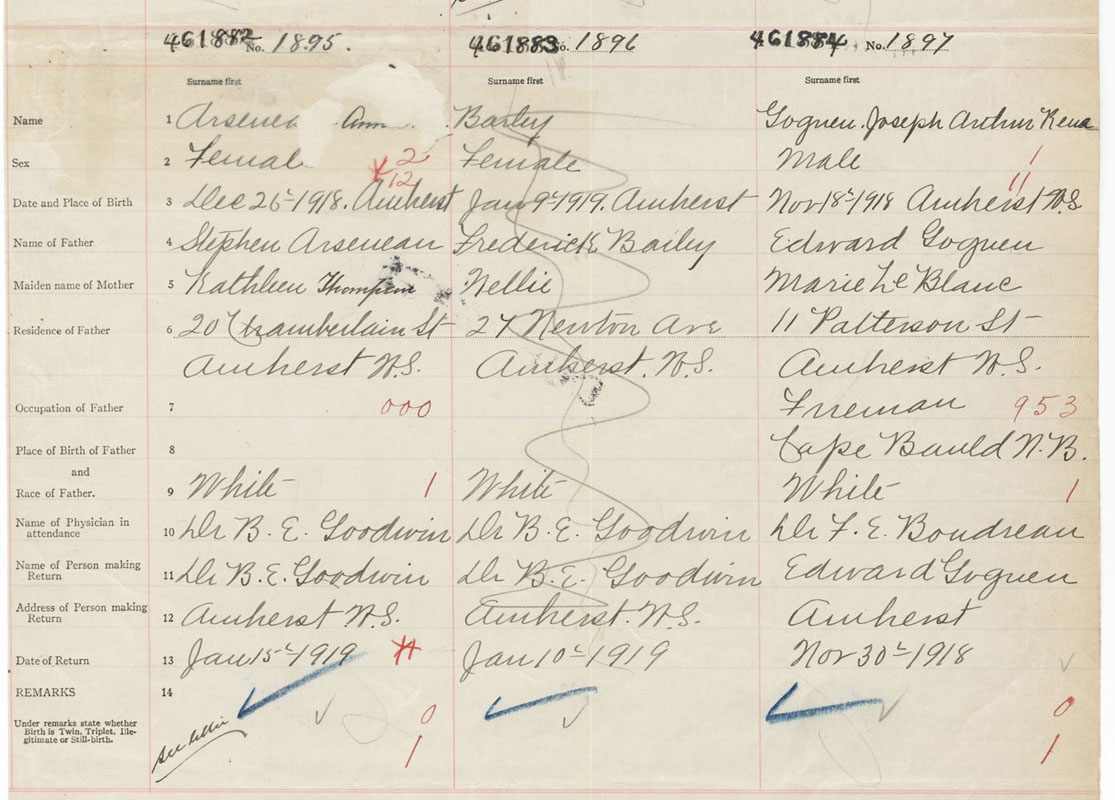 461882 No. 1895. 461883 No. 1896 461884 No. 1897
Surname first Surname first Surname first
Name 1 Arsenea Ann Bailey Goguen. Joseph Arthur Rena
Sex 2 Female 2 Female Male 1
12 11
Date and Place of Birth 3 Dec 26th 1918. Amherst Jan 9th 1919. Amherst Nov 18th 1918 Amherst N.S
Name of Father 4 Stephen Arseneau Frederick Baily Edward Goguen
Maiden name of Mother 5 Kathleen Thompson Nellie Marie Le Blanc
Residence of Father 6 20 Chamberlain St 27 Newton Ave 11 Patterson St
Amherst N.S. Amherst. N.S. Amherst N.S.
Occupation of Father 7 000 Frieman 953
Place of Birth of Father 8 Cape Bauld N.B.
and
Race of Father. 9 White 1 White White 1
Name of Physician in
attendance 10 Dr B. E. Goodwin Dr B. E. Goodwin Dr F. E. Boudreau
Name of Person making
Return 11 Dr B. E. Goodwin Dr B. E. Goodwin Edward Goguen
Address of Person making
Return 12 Amherst N.S. Amherst. N.S. Amherst
Date of Return 13 Jan 15th 1919 H Jan 10th 1919 Nov 30th 1918
REMARKS 14
Under remarks state whether
Birth is Twin, Triplet, Ille-
gitimate or Still-birth.
0 0
See
1 1